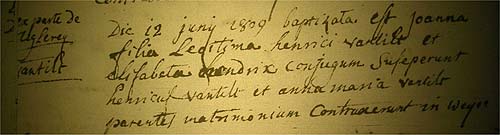 ex parte de
vantilt
Die 12 junij 1809 baptizata est joanna
filia Legitima henrici vantilt et
elisabeta hendrix conjugum suseperunt
henricus vantilt et anna maria vantilt
parentes matrimonium Contraxerunt in weyer